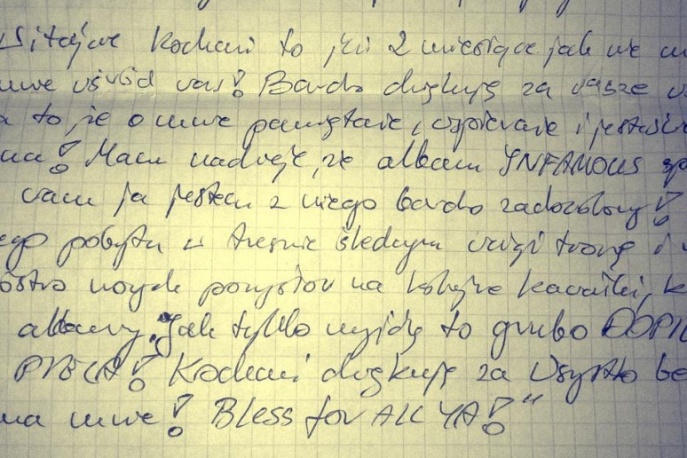 Witajcie Kochani to już 2 miesiące jak nie m
mnie wśród was! Bardo dziękuję za wasze
to, że o mnie pamiętacie, wspieracie i jesteście
na! Mam nadzieję, że album INFAMOUS
wam ja jestem z niego bardo zadowolony!
ego pobytu w areszcie śledczym wizji
ostro nowych pomysłów na kolejne kawałki, k
albumy. Jak tylko wyjdę to grubo DOPIE
Kochani dziękuję za wszystko be
na mnie! Bless for ALL YA!"